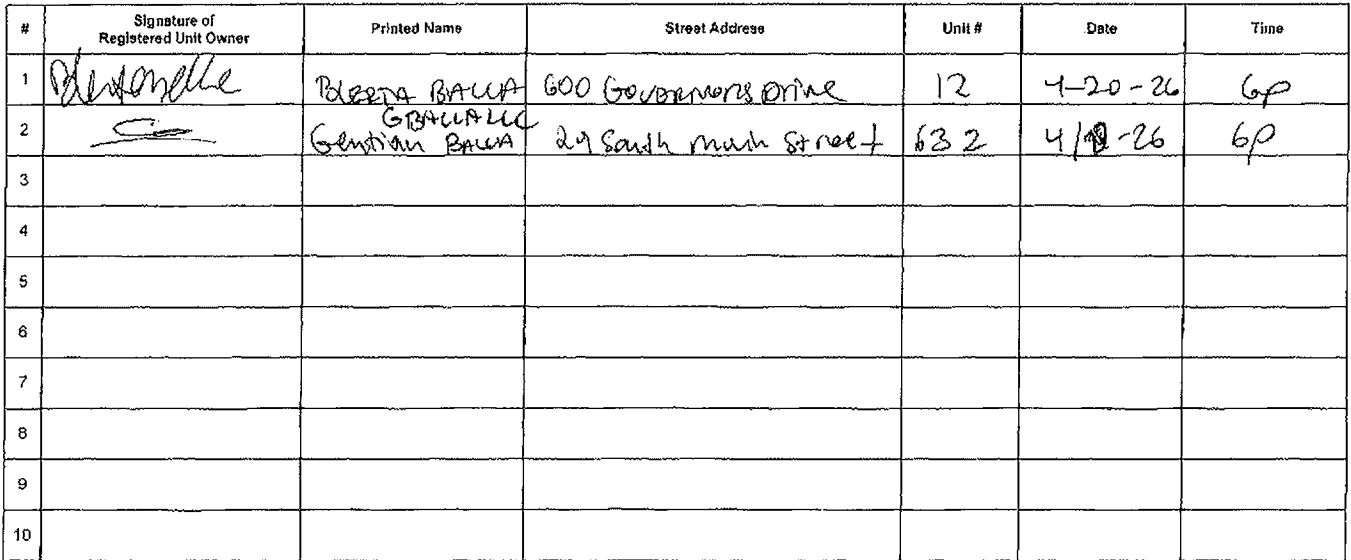 # Signature of Registered Unit Owner Printed Name Street Address Unit # Date Time
1 BLERTA BALLA 600 Governors Drive 12 4-20-26 6p
GBALLA LLC
2 Gentian BALLA 29 South Main Street 632 4/ -26 6p
3
4
5
6
7
8
9
10